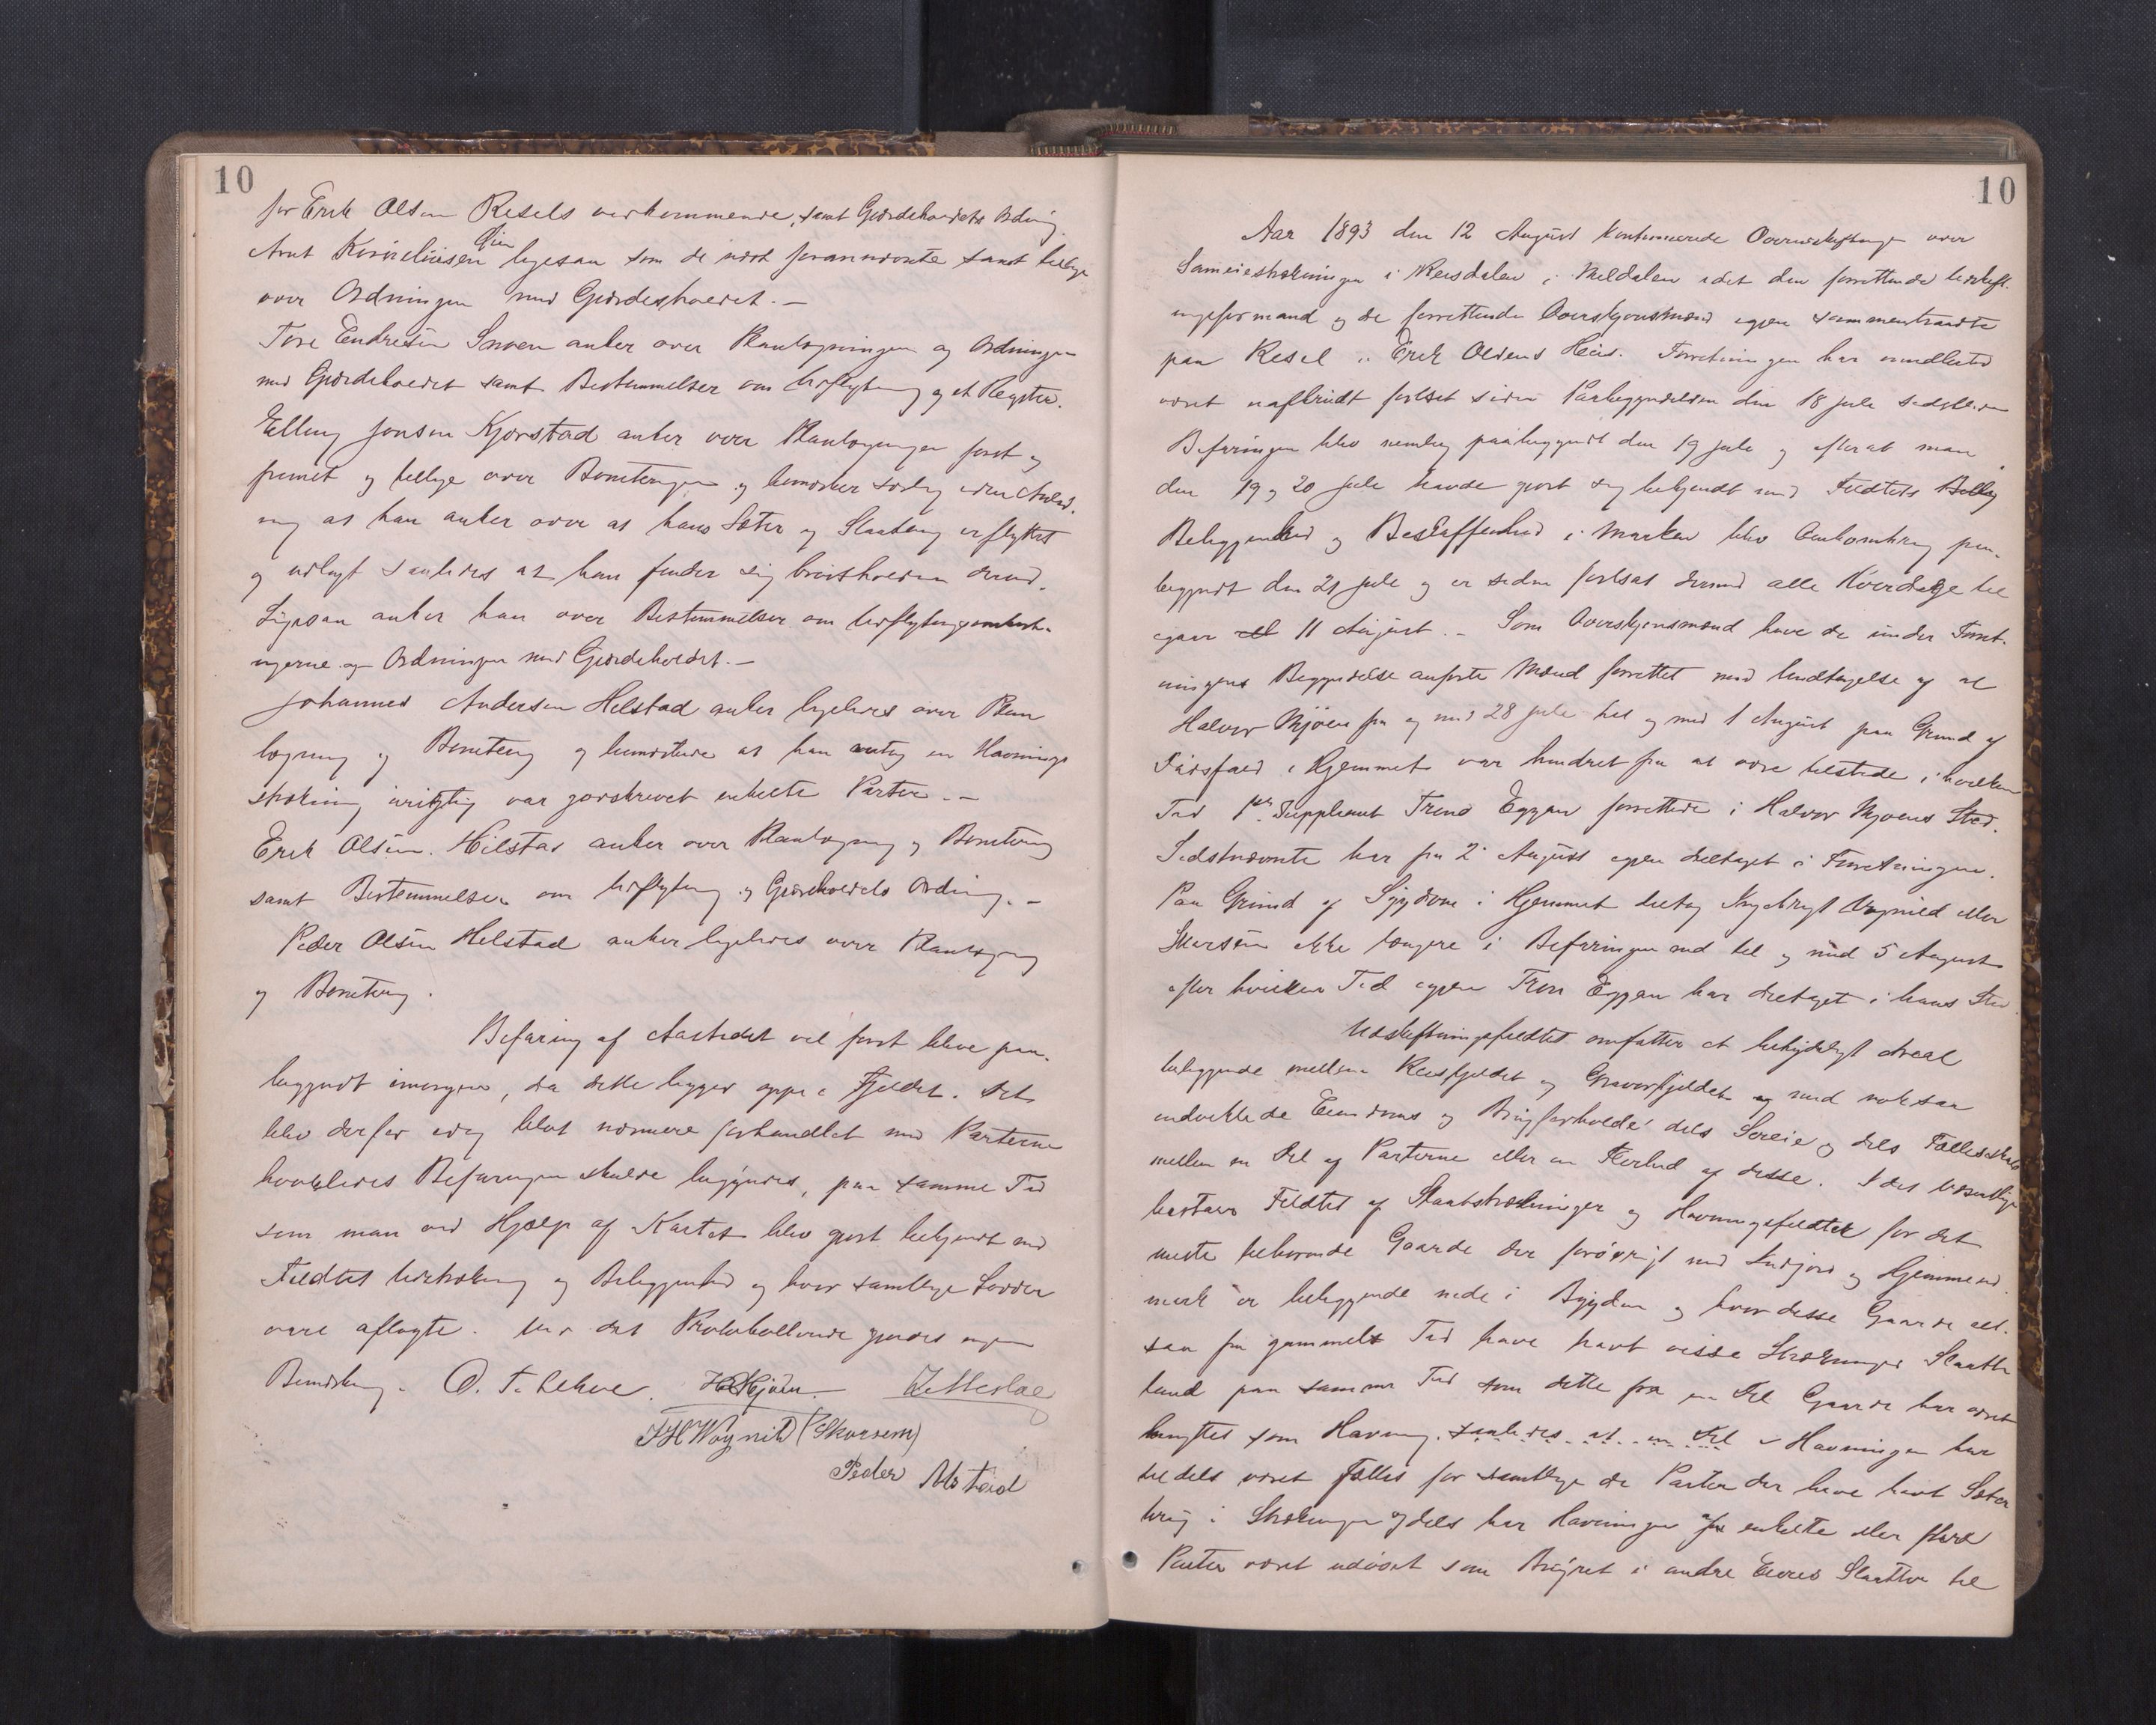 10
for Erik Olsen Resels vedkommende, samt Gjærdeholdets Ordning.
Arnt Korneliusen Lien ligesaa som de næst forannævnte samt tillige
over Ordningen med Gjærdesholdet. -
Tore Endresen Snoen anker over Planlægningen og Ordningen
med Gjærdeholdet samt Bestemmelser om Udflytning og et Register.
Elling Jonsen Kjørstad anker over Planlægningen først og
fremst og tillige over Boniteringen og bemærker særlig uden Anled-
ning at han anker over at hans Sæter og Slaatteng er flyttet
og udlagt saaledes at han finder sig brøstholden derved.
Ligesaa anker han over Bestemmelser om Udflytningsomkost-
ningerne og Ordningen med Gjærdeholdet. -
Johannes Andersen Helstad anker ligeledes over Plan
lægning og Bonitering og bemærkede at han antog en Havnings
strækning urigtig var godskrevet enkelte Parter. -
Erik Olsen Hilstad anker over Planlægning og Bonitering
samt Bestemmelser om Udflytning og Gjærdeholdets Ordning. -
Peder Olsen Helstad anker ligeledes over Planlægning
og Bonitering.
Befaring af Aastedet vil først blive paa-
begyndt imorgen, da dette ligger oppe i Fjeldet. Det
blev derfor idag blot nærmere forhandlet med Parterne
hvorledes Befaringen skulde begyndes, paa samme Tid
som man ved Hjælp af Kartet blev gjort bekjendt med
Feldtets Udstrækning og Beliggenhed og hvor samtlige Lodder
vare aflagte. Ved det Protokollerede gjordes ingen
Bemærkning. O. T. Lehne. H Mjøen.
J H Wognild (Skarsem)
Peder Mostad
10
Aar 1893 den 12 August kontinuerede Overudskiftningen over
Sameiestrækningen i Resdalen i Meldalen idet den forrettende Udskift-
ningsformand og de forrettende Overskjønsmænd igjen sammentraadte
paa Resel i Erik Olsens Hus. Forretningen har imidlertid
været uafbrudt fortsat siden Paabegyndelsen den 18 Juli sidstleden
Befaringen blev nemlig paabegyndt den 19 Juli og efterat man
den 19 og 20 Juli havde gjort sig bekjendt med Feldtets
Beliggenhed og Beskaffenhed i Marken blev Ombonitering paa-
begyndt den 21 Juli og er siden fortsat dermed alle Hverdage til
igaar 11 August. - Som Overskjønsmænd have de under Forret-
ningens Begyndelse anførte Mænd forrettet med Undtagelse af at
Halvor Mjøen fra og med 28 Juli til og med 1 August paa Grund af
Dødsfald i Hjemmet var hindret fra at være tilstede i hvilken
Tid 1ste Suppleant Trond Eggen forrettede i Halvor Mjøens Sted.
Sidstnævnte har fra 2 August igjen deltaget i Forretningen.
Paa Grund af Sygdom i Hjemmet deltog Wognild eller
Skarsem ikke længere i Befaringen end til og med 5 August
efter hvilken Tid igjen Tron Eggen har deltaget i hans Sted.
Udskiftningsfeldtet omfatter et betydeligt Areal
beliggende mellem Resfjeldet og Gravarfjeldet og med noksaa
indviklede Eiendoms og Brugsforholde dels Særeie og dels Fællesskab
mellem en Del af Parterne eller en Flerhed af disse. I det væsentlige
bestaar Feldtet af Slaatstrækninger og Havningsfeldter for det
meste tilhørende Gaarde der forøvrigt med Indjord og Hjemmeud-
mark er beliggende nede i Bygden og hvor disse Gaarde alt-
saa fra gammelt Tid have havt visse Strækninger Slaatte
land paa samme Tid som dette fra en Del Gaarde har været
benyttet som Havning. saaledes at en Del Havningen har
tildels været Fælles for samtlige de Parter der have havt Sæter
brug i Strækningen og dels har Havningen for enkelte eller flere
Parter været udøvet som Brugsret i andre Eieres Slaatter til